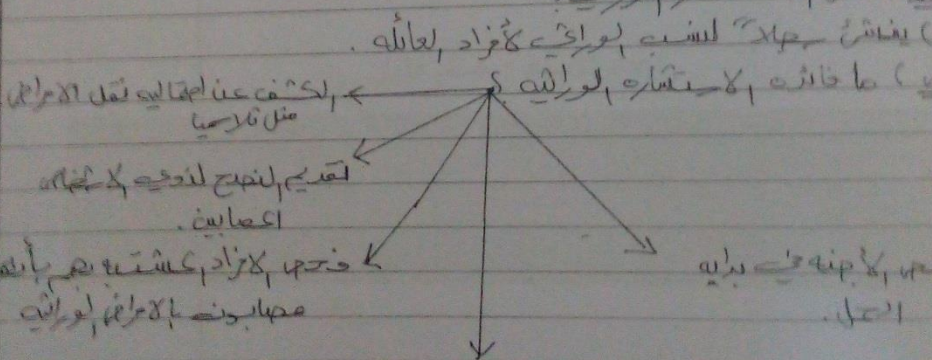 يناقش سجلاً للنسب الوراثي لأفراد العائلة.
ما فائدة الاستشاره الوراثيه ؟
الكشف عن احتماليه نقل الامراض
مثل تلاسيميا
تقديم النصح لذوي الاشخاص
المصابين.
فحص الافراد المشتبه بهم بأنهم
مصابون بالامراض الوراثيه
الأجنه في بدايه
الحمل.